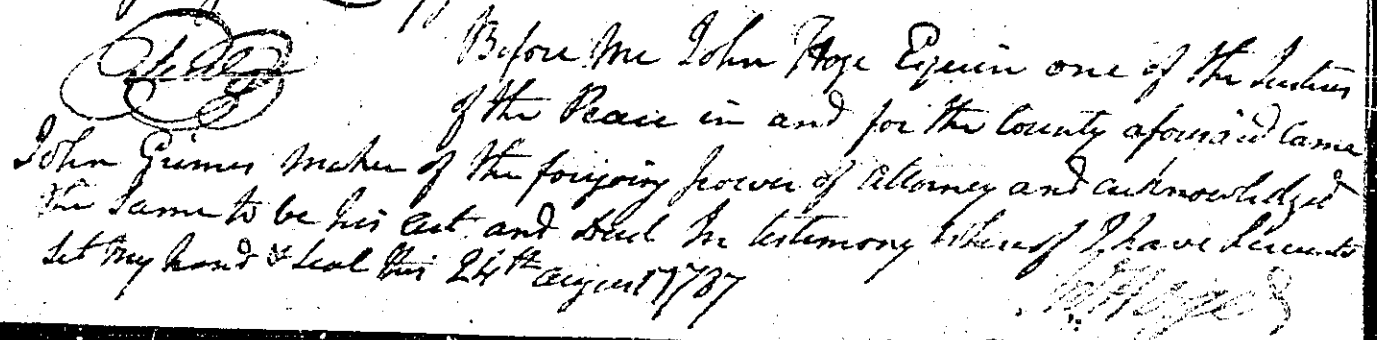 Before Me John Hoge Esquire one of the Justices
of the Peace in and for the County aforesaid Came
John Grimes Maker of the foregoing power of Attorney and acknowledged
the Same to be his act and Deed In testimony whereof I have hereunto
Set my hand & Seal this 24th august 1787
Jno Hoge